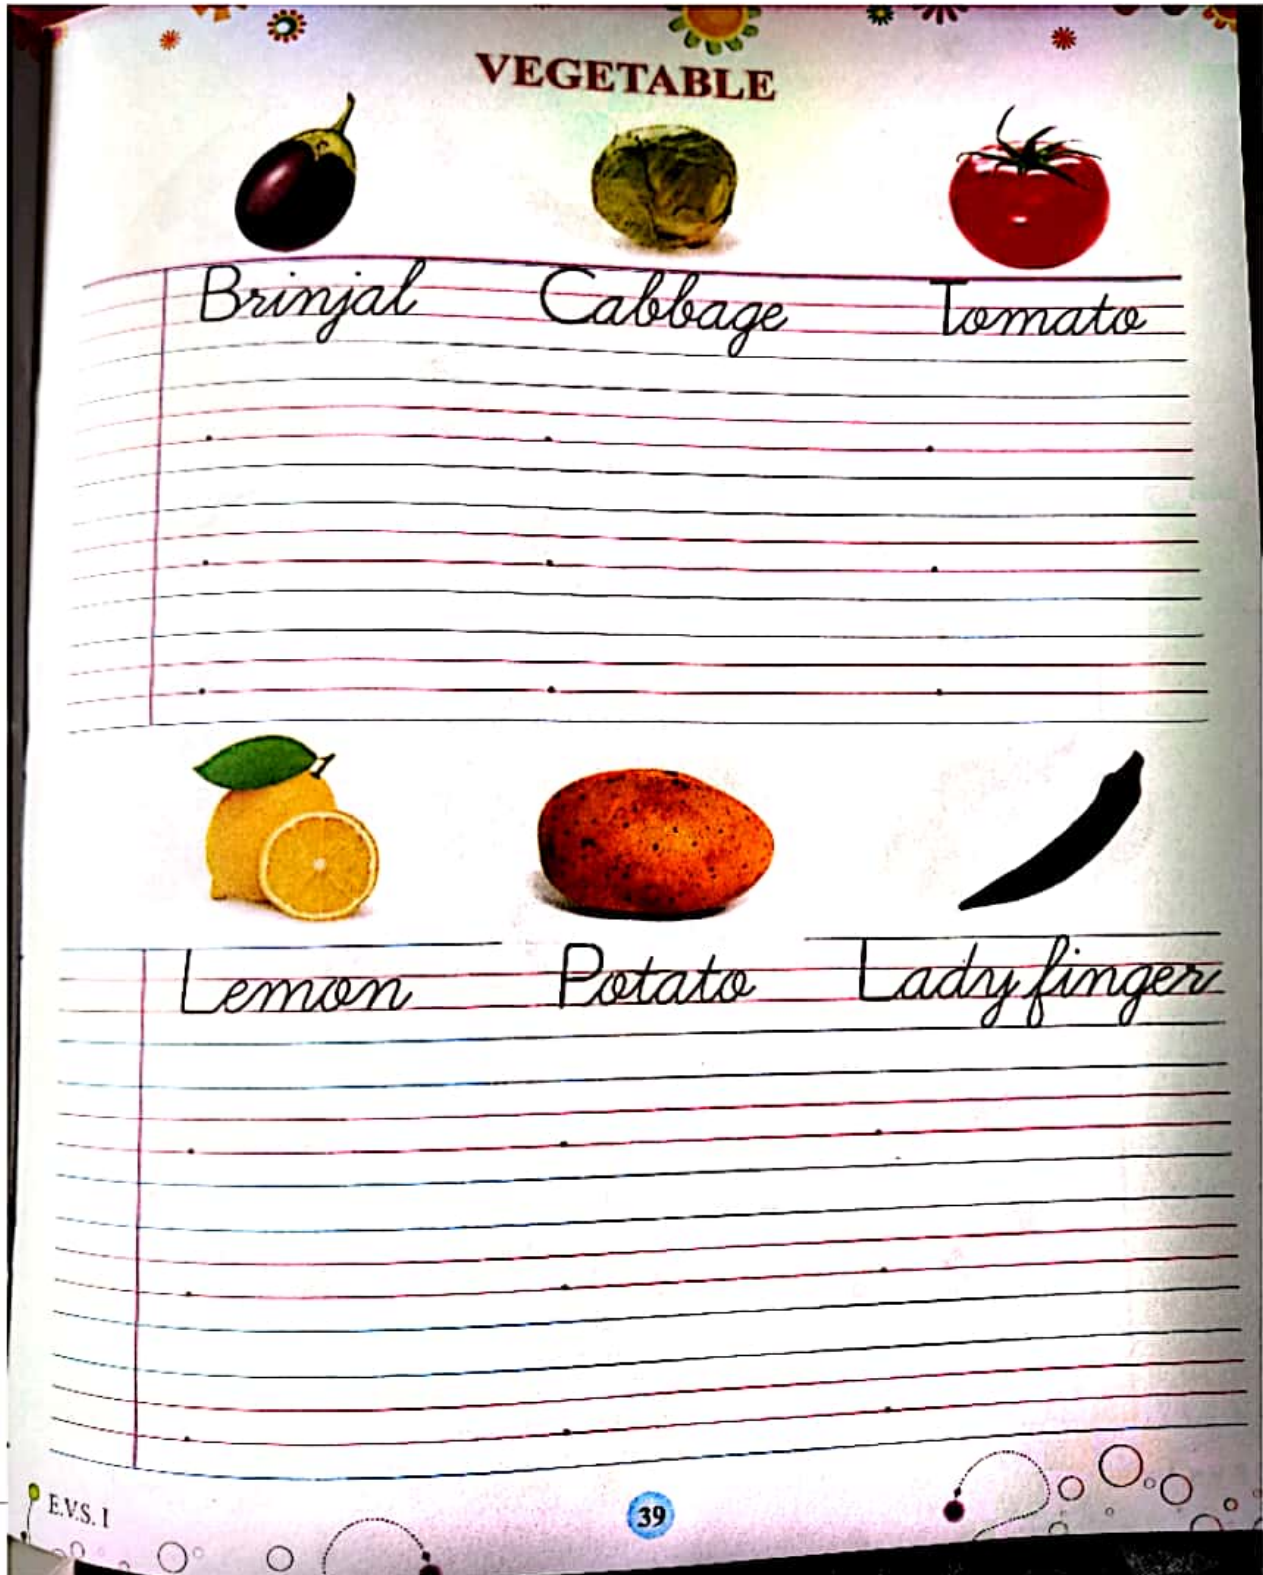 VEGETABLE
Brinjal Cabbage Tomato
Lemon Potato Lady finger
E.V.S. I
39